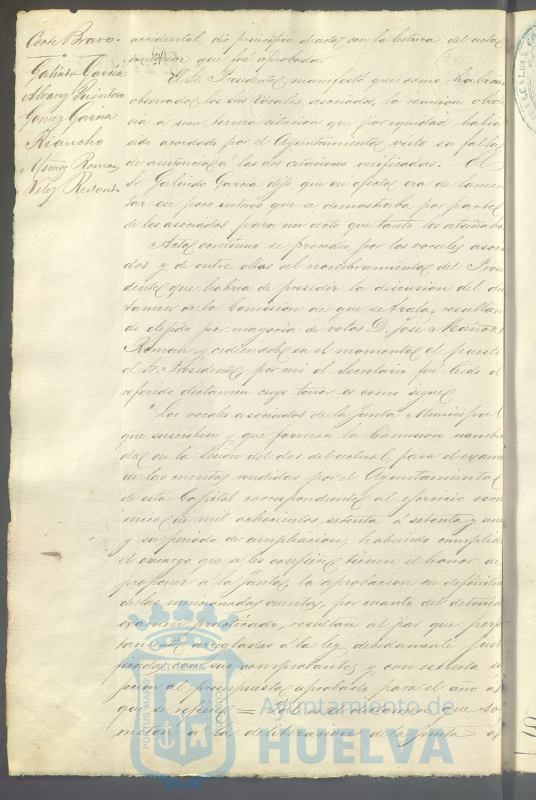 Conde Bravo.
Galindo García
Alvarez Quintero
Gomez García
Riancho
Muñoz Roman
Velez Redondo
accidental, dio principio el acto con la lectura del acta
anterior que fué aprobada.
El Sr. Presidente manifestó que como habran
observado los Sres Vocales asociados, la reunion obede
cia á una tercera citacion que por equidad habia
sido acordado por el Ayuntamiento visto su falta
de asistencia á las dos citaciones verificadas. El
Sr. Galindo García dijo que en efecto era de lamen
tar ese poco interés que se demostraba por parte
de los asociados para un acto que tanto les atañaba
Acto continuo se procedió por los vocales asocia
dos y de entre ellos al nombramiento del Presi
dente que habria de presidir la discusion del dic
tamen de la Comision de que se trata, resultan
do elejido por mayoria de votos D. José Muñoz
Roman y cediendole en el momento el puesto
el Sr. Presidente, por mi el Secretario fué leido el
referido dictamen cuyo tenor es como sigue
"Los vocales asociados de la Junta Municipal
que suscriben y que forman la Comision nombra
da en la sesion del dos del actual, para el examen
de las cuentas rendidas por el Ayuntamiento
de esta Capital correspondientes al ejercicio econo
mico de mil ochocientos setenta á setenta y uno
y su periodo de ampliacion, habiendo cumplido
el encargo que se les confiere tienen el honor de
proponer á la Junta la aprobacion en definitiva
de las mencionadas cuentas, por cuanto del detenido
examen practicado, resultan al par que perfec
tamente arregladas á la ley, debidamente justi
ficadas con sus comprobantes y con estricta su
jecion al presupuesto aprobado para el año á
que se refiere =
meten á la deliberacion de la Junta á
Ayuntamiento de
HUELVA